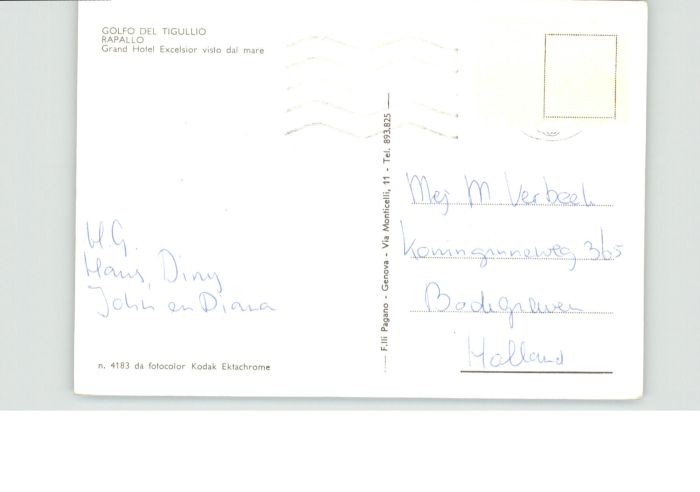 GOLFO DEL TIGULLIO
RAPALLO
Grand Hotel Excelsior visto dal mare
H.G.
Hans, Diny
John en Diana
n. 4183 da fotocolor Kodak Ektachrome
F.lli Pagano - Genova - Via Monticelli, 11 - Tel. 893.825
Mej M Verbeek
Koninginneweg 365
Bodegraven
Holland